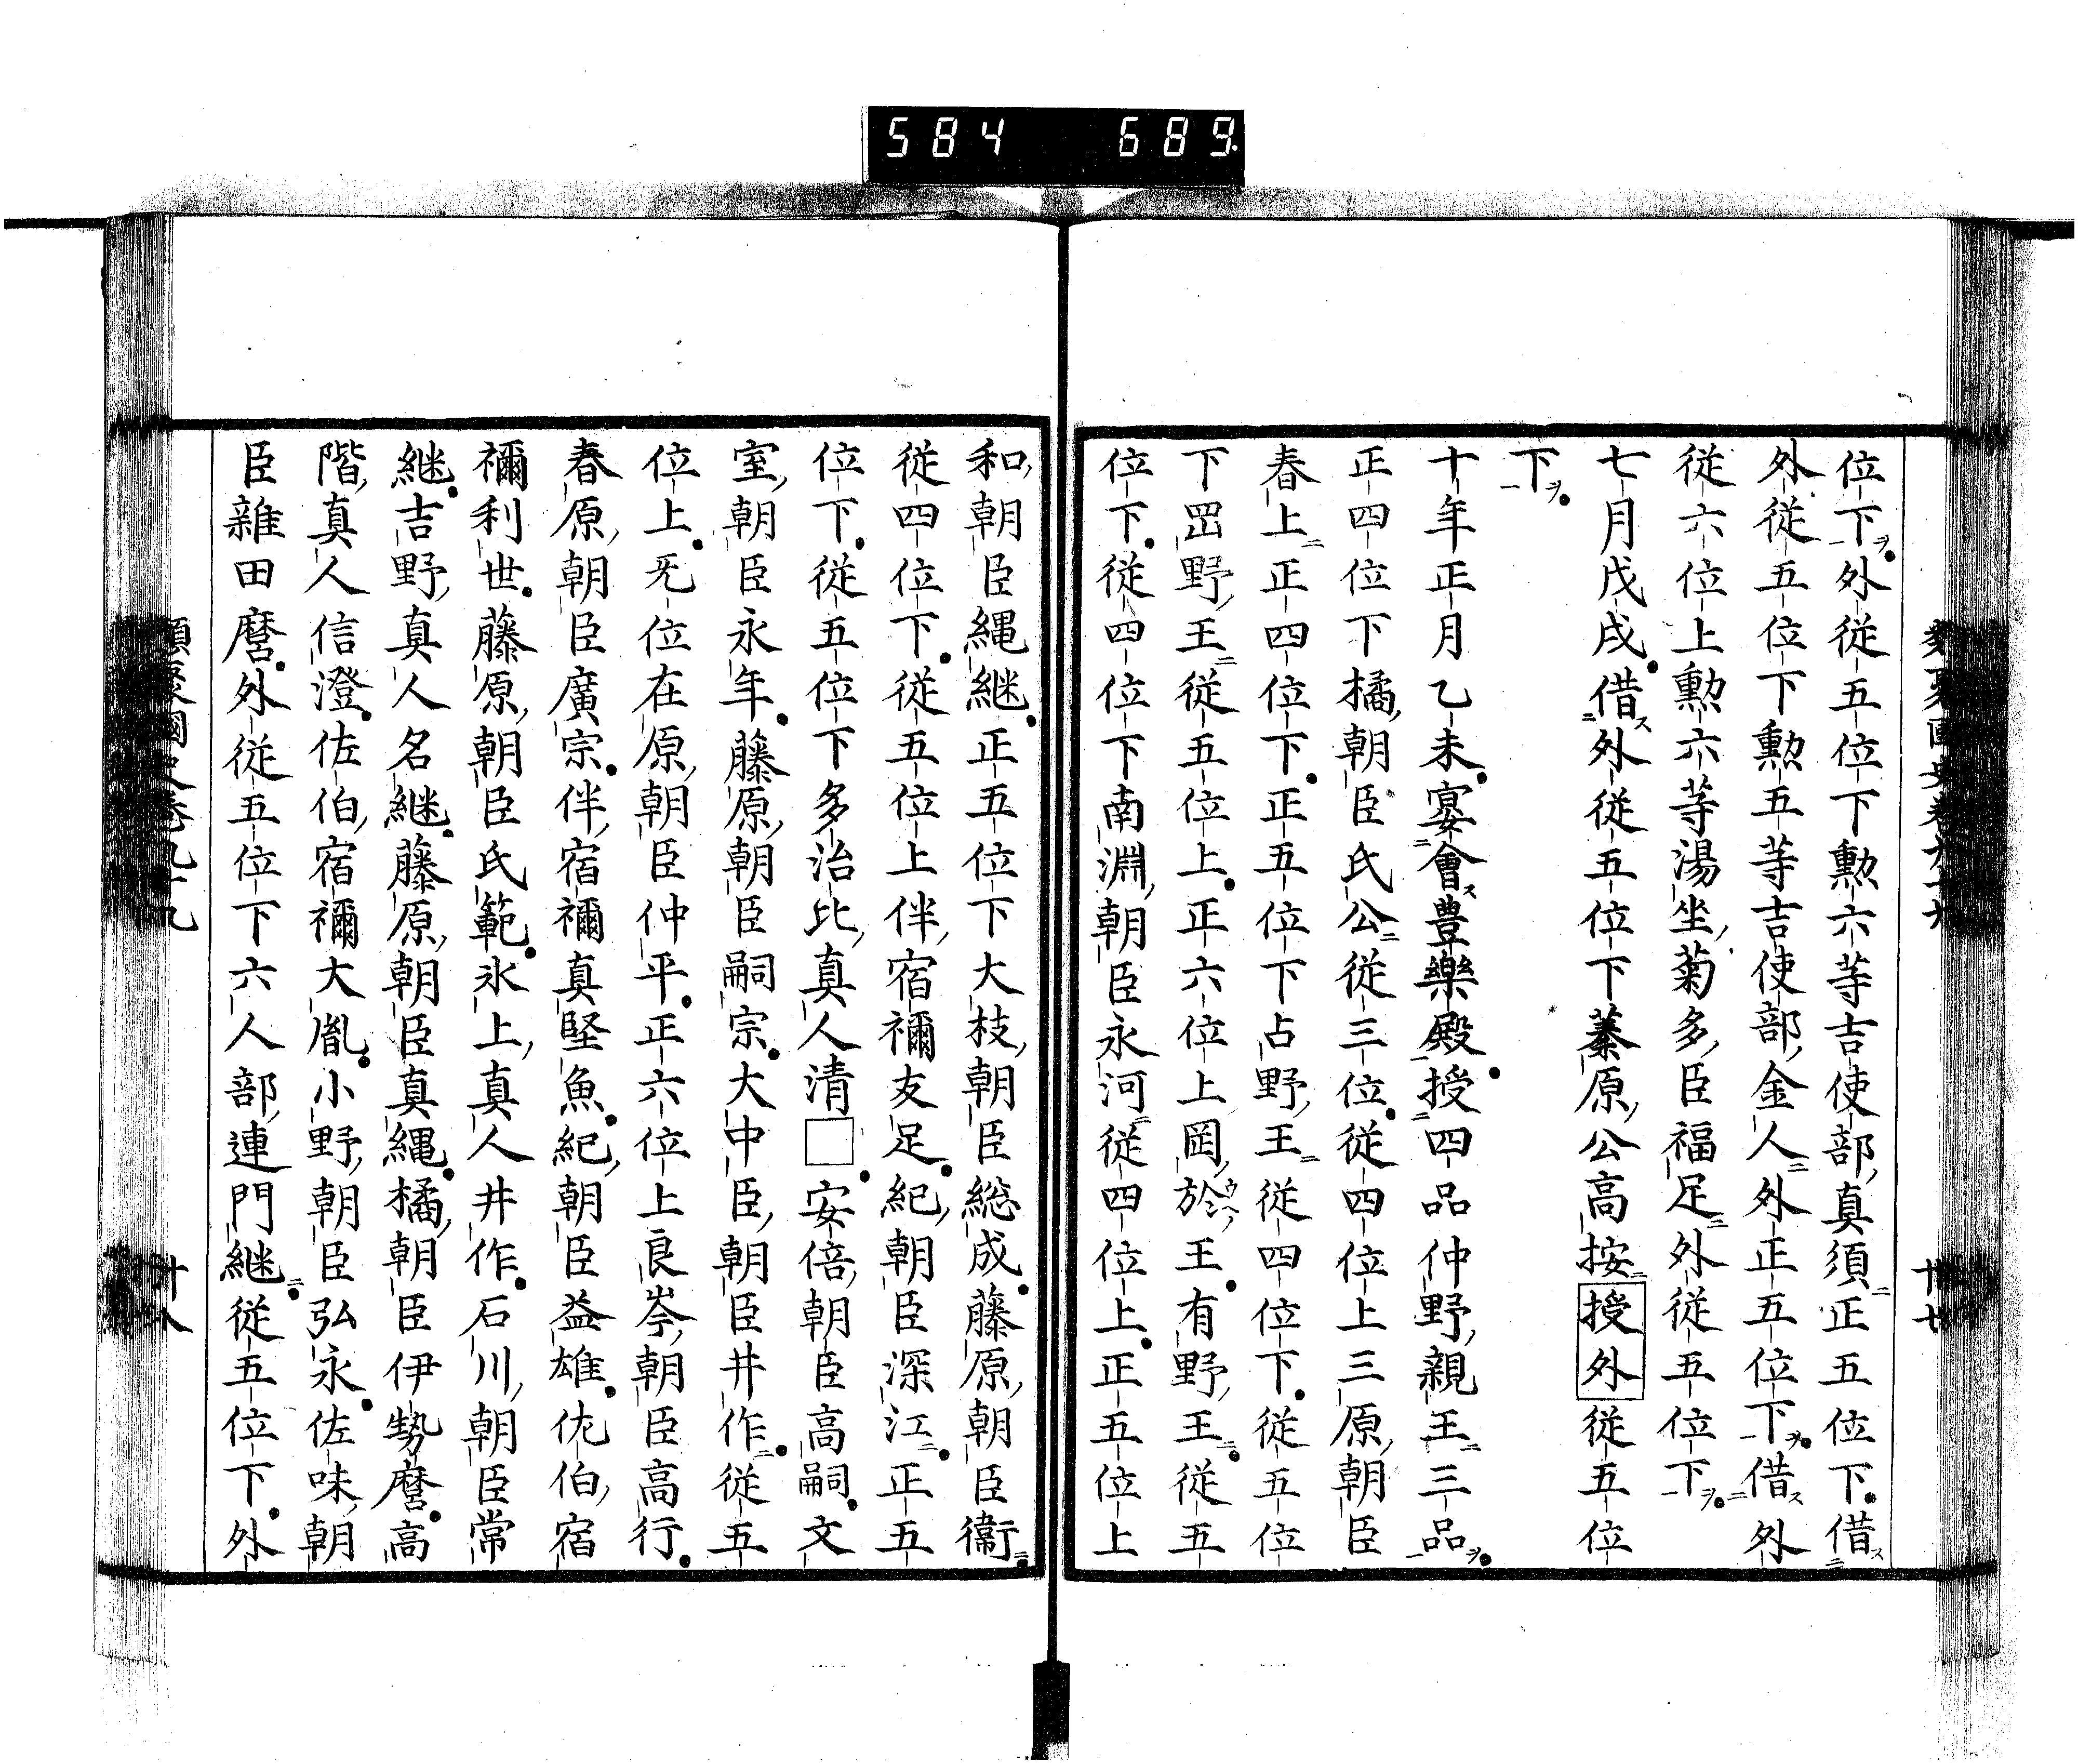 584 689
位下外從五位下勲六等吉使部真須正五位下借
外從五位下勲五等吉使部金人外正五位下借外
從六位上勲六等湯坐菊多臣福足外從五位下
七月戊戌借外從五位下蓁原公高按授外從五位
下
十年正月乙未宴會豊樂殿授四品仲野親王三品
正四位下橘朝臣氏公從三位從四位上三原朝臣
春上正四位下正五位下占野王從四位下從五位
下岡野王從五位上正六位上岡於王有野王從五
位下從四位下南淵朝臣永河從四位上正五位上
和朝臣縄継正五位下大枝朝臣総成藤原朝臣衞
從四位下從五位上伴宿禰友足紀朝臣深江正五
位下從五位下多治比真人清□安倍朝臣高嗣文
室朝臣永年藤原朝臣嗣宗大中臣朝臣井作從五
位上旡位在原朝臣仲平正六位上良岑朝臣高行
春原朝臣廣宗伴宿禰真堅魚紀朝臣益雄佐伯宿
禰利世藤原朝臣氏範氷上真人井作石川朝臣常
継吉野真人名継藤原朝臣真縄橘朝臣伊勢麿高
階真人信澄佐伯宿禰大胤小野朝臣弘永佐味朝
臣雜田麿外從五位下六人部連門継從五位下外
類聚國史卷九十九
十八